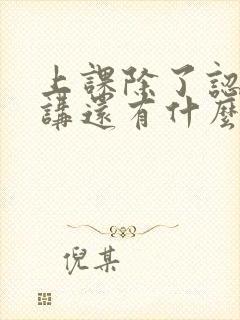 上課除了認
講還有什麼
倪某